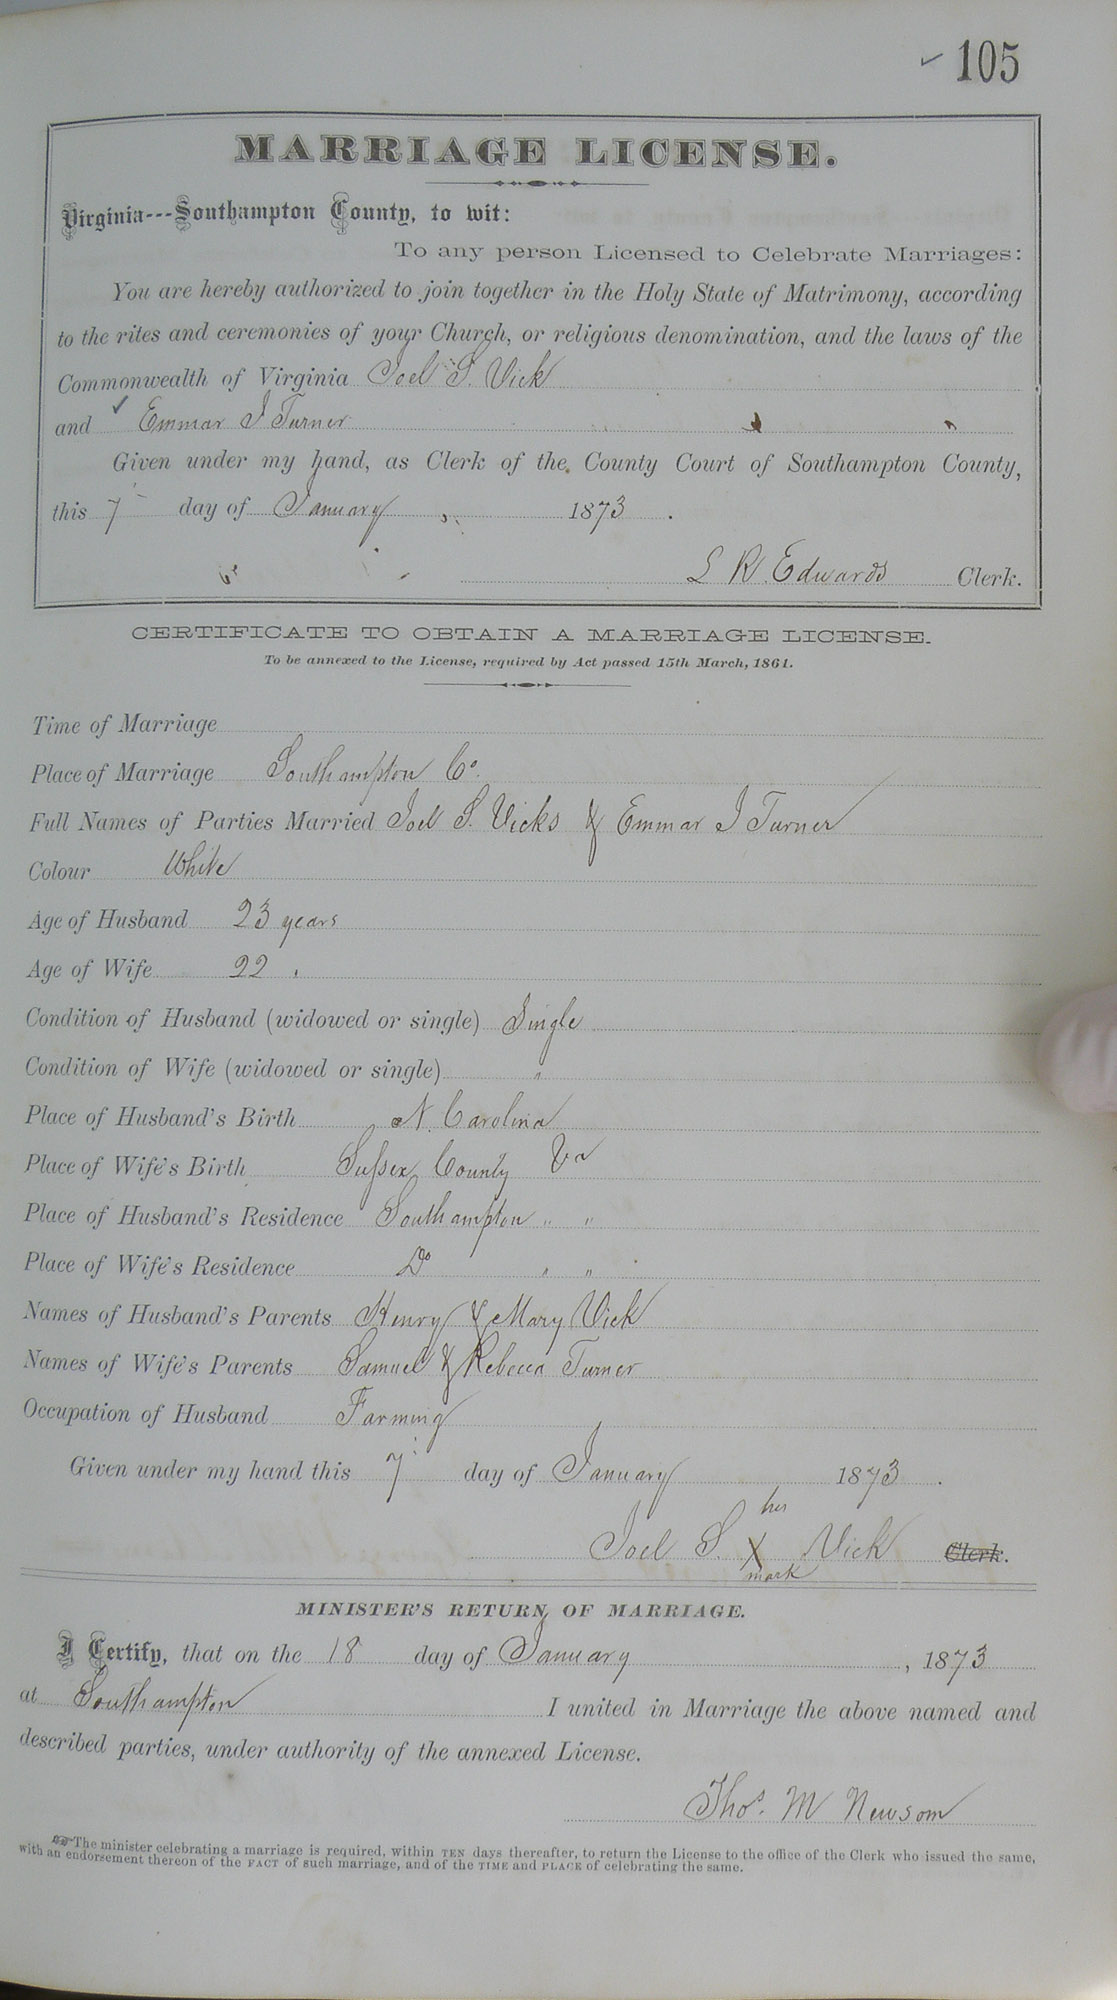 ✓ 105
MARRIAGE LICENSE.
Virginia---Southampton County, to wit:
To any person Licensed to Celebrate Marriages:
You are hereby authorized to join together in the Holy State of Matrimony, according
to the rites and ceremonies of your Church, or religious denomination, and the laws of the
Commonwealth of Virginia Joel S. Vick
and ✓ Emmar J Turner
Given under my hand, as Clerk of the County Court of Southampton County,
this 7 day of January 1873.
L R. Edwards Clerk.
CERTIFICATE TO OBTAIN A MARRIAGE LICENSE.
To be annexed to the License, required by Act passed 15th March, 1861.
Time of Marriage
Place of Marriage Southampton Co.
Full Names of Parties Married Joel S. Vicks & Emmar J Turner
Colour White
Age of Husband 23 years
Age of Wife 22 "
Condition of Husband (widowed or single) Single
Condition of Wife (widowed or single) "
Place of Husband's Birth N. Carolina
Place of Wife's Birth Sussex County Va
Place of Husband's Residence Southampton " "
Place of Wife's Residence Do " "
Names of Husband's Parents Henry & Mary Vick
Names of Wife's Parents Samuel & Rebecca Turner
Occupation of Husband Farming
Given under my hand this 7 day of January 1873.
his
Joel S. X Vick Clerk.
mark
MINISTER'S RETURN OF MARRIAGE.
I Certify, that on the 18 day of January, 1873
at Southampton I united in Marriage the above named and
described parties, under authority of the annexed License.
Thos. M Newsom
The minister celebrating a marriage is required, within TEN days thereafter, to return the License to the office of the Clerk who issued the same,
with an endorsement thereon of the FACT of such marriage, and of the TIME and PLACE of celebrating the same.